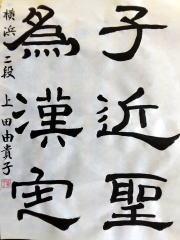 子近聖
為漢定
横浜 二段 上田由貴子